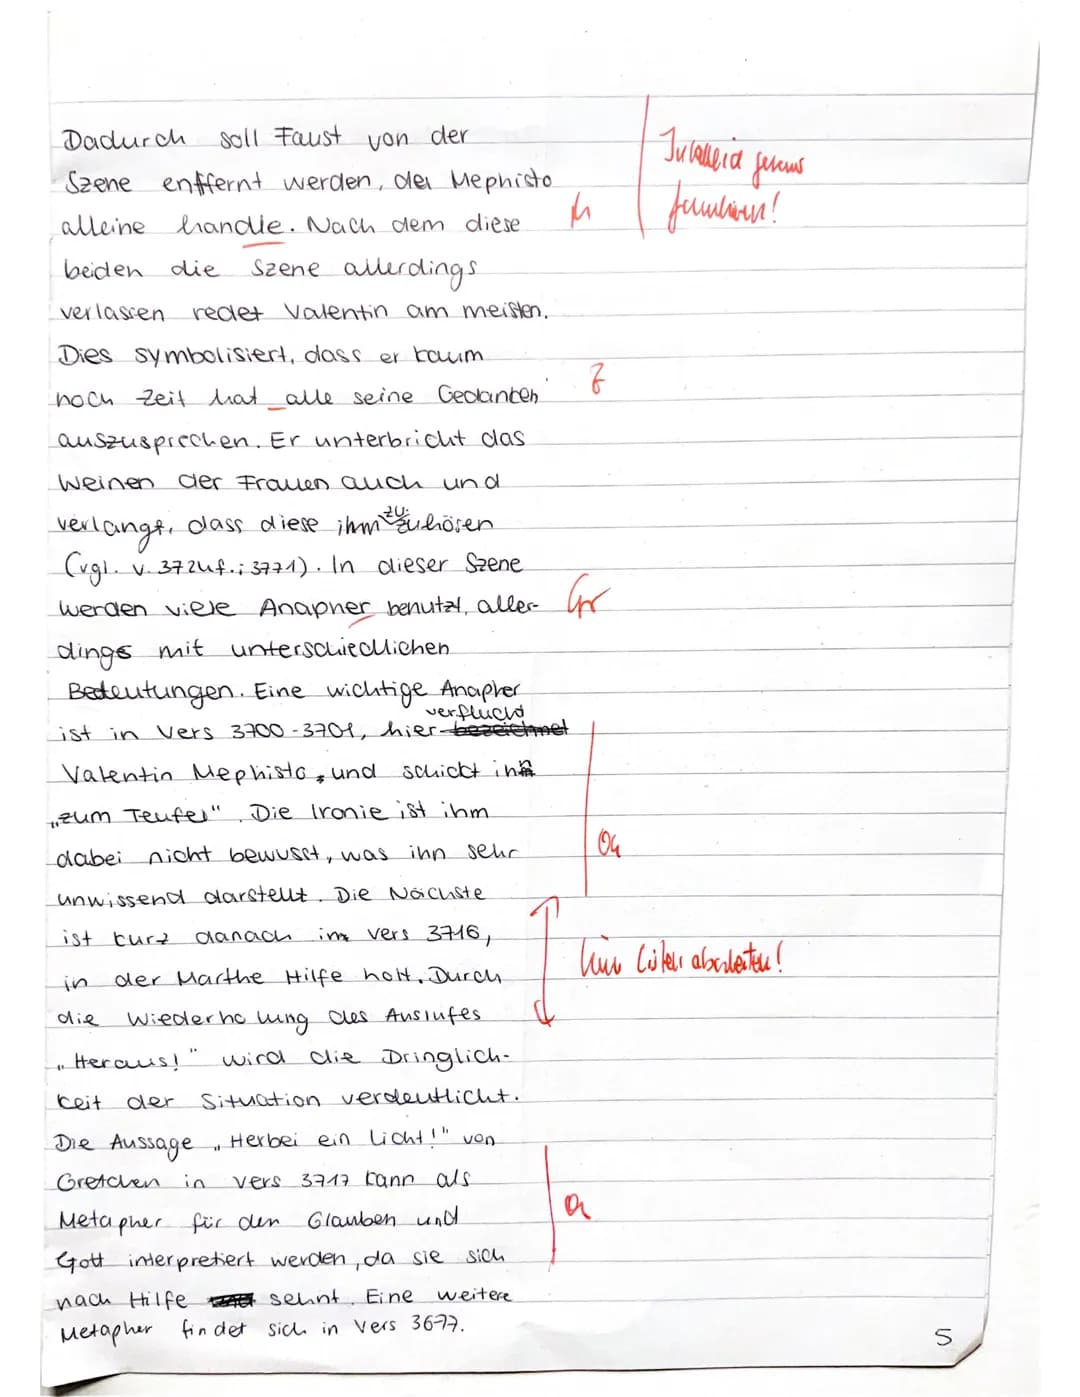 Dadurch soll Faust von der
Szene entfernt werden, der Mephisto
alleine handle. Nach dem diese
beiden die Szene allerdings
verlassen redet Valentin am meisten.
Dies symbolisiert, dass er kaum
noch Zeit hat alle seine Gedanken
Z
auszusprechen. Er unterbricht das
Weinen der Frauen auch und
verlangt, dass diese ihm zu-
zuhören
(vgl. v. 3724f.; 3771). In dieser Szene
werden viele Anapher benutzt, aller-
Gr
dings mit unterschiedlichen
Bedeutungen. Eine wichtige Anapher
verflucht
ist in Vers 3700-3701, hier bezeichnet
Valentin Mephisto, und schickt ihn
„zum Teufel". Die Ironie ist ihm
dabei nicht bewusst, was ihn sehr
unwissend darstellt. Die Nächste
ist kurz danach im Vers 3716,
in der Marthe Hilfe holt. Durch
die Wiederholung des Ausrufes
„Heraus!" wird die Dringlich-
keit der Situation verdeutlicht.
Die Aussage „Herbei ein Licht!" von
Gretchen in Vers 3717 kann als
Metapher für den Glauben und
Gott interpretiert werden, da sie sich
nach Hilfe sehnt. Eine weitere
Metapher findet sich in Vers 3677.
5